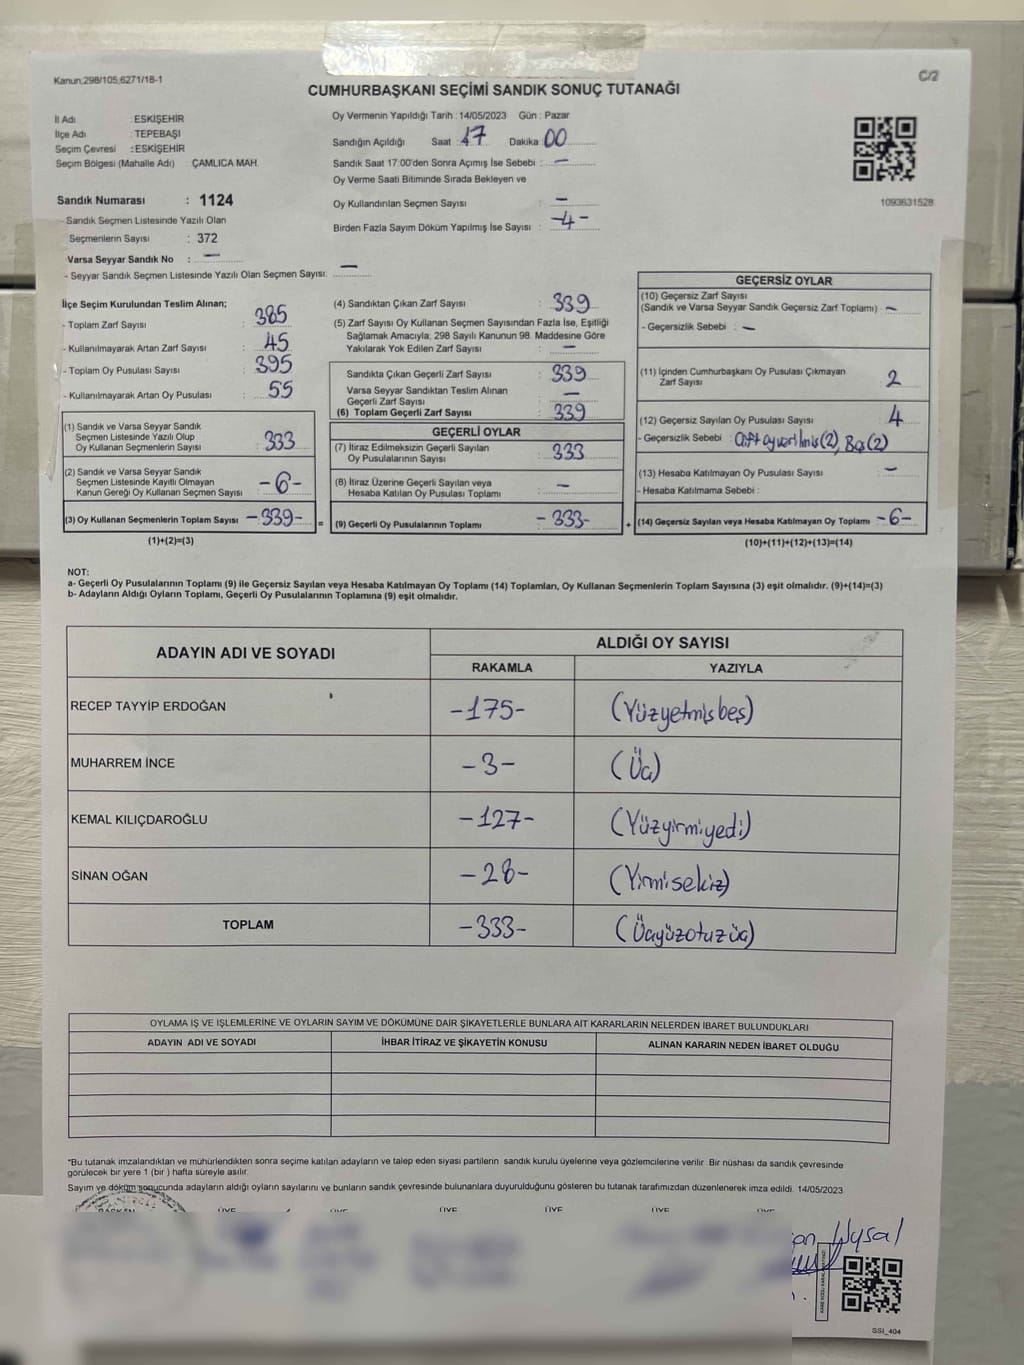 Kanun:298/105;6271/18-1
C/2
CUMHURBAŞKANI SEÇİMİ SANDIK SONUÇ TUTANAĞI
İl Adı : ESKİŞEHİR
İlçe Adı : TEPEBAŞI
Seçim Çevresi : ESKİŞEHİR
Seçim Bölgesi (Mahalle Adı) ÇAMLICA MAH.
Sandık Numarası : 1124
- Sandık Seçmen Listesinde Yazılı Olan
Seçmenlerin Sayısı : 372
Varsa Seyyar Sandık No : —
- Seyyar Sandık Seçmen Listesinde Yazılı Olan Seçmen Sayısı: —
Oy Vermenin Yapıldığı Tarih : 14/05/2023 Gün : Pazar
Sandığın Açıldığı Saat : 17 Dakika : 00
Sandık Saat 17:00'den Sonra Açımış İse Sebebi : —
Oy Verme Saati Bitiminde Sırada Bekleyen ve
Oy Kullandırılan Seçmen Sayısı : —
Birden Fazla Sayım Döküm Yapılmış İse Sayısı : -4-
1093631528
İlçe Seçim Kurulundan Teslim Alınan;
- Toplam Zarf Sayısı : 385
- Kullanılmayarak Artan Zarf Sayısı : 45
- Toplam Oy Pusulası Sayısı : 395
- Kullanılmayarak Artan Oy Pusulası : 55
(1) Sandık ve Varsa Seyyar Sandık
Seçmen Listesinde Yazılı Olup
Oy Kullanan Seçmenlerin Sayısı : 333
(2) Sandık ve Varsa Seyyar Sandık
Seçmen Listesinde Kayıtlı Olmayan
Kanun Gereği Oy Kullanan Seçmen Sayısı -6-
(3) Oy Kullanan Seçmenlerin Toplam Sayısı -339-
(1)+(2)=(3)
(4) Sandıktan Çıkan Zarf Sayısı : 339
(5) Zarf Sayısı Oy Kullanan Seçmen Sayısından Fazla İse, Eşitliği
Sağlamak Amacıyla; 298 Sayılı Kanunun 98. Maddesine Göre
Yakılarak Yok Edilen Zarf Sayısı : —
Sandıkta Çıkan Geçerli Zarf Sayısı : 339
Varsa Seyyar Sandıktan Teslim Alınan
Geçerli Zarf Sayısı : —
(6) Toplam Geçerli Zarf Sayısı : 339
GEÇERLİ OYLAR
(7) İtiraz Edilmeksizin Geçerli Sayılan
Oy Pusulalarının Sayısı : 333
(8) İtiraz Üzerine Geçerli Sayılan veya
Hesaba Katılan Oy Pusulası Toplamı : —
= (9) Geçerli Oy Pusulalarının Toplamı -333-
GEÇERSİZ OYLAR
(10) Geçersiz Zarf Sayısı
(Sandık ve Varsa Seyyar Sandık Geçersiz Zarf Toplamı) : —
- Geçersizlik Sebebi : —
(11) İçinden Cumhurbaşkanı Oy Pusulası Çıkmayan
Zarf Sayısı 2
(12) Geçersiz Sayılan Oy Pusulası Sayısı 4
- Geçersizlik Sebebi : Çift oy verilmiş (2), Boş (2)
(13) Hesaba Katılmayan Oy Pusulası Sayısı —
- Hesaba Katılmama Sebebi :
+ (14) Geçersiz Sayılan veya Hesaba Katılmayan Oy Toplamı -6-
(10)+(11)+(12)+(13)=(14)
NOT:
a- Geçerli Oy Pusulalarının Toplamı (9) ile Geçersiz Sayılan veya Hesaba Katılmayan Oy Toplamı (14) Toplamları, Oy Kullanan Seçmenlerin Toplam Sayısına (3) eşit olmalıdır. (9)+(14)=(3)
b- Adayların Aldığı Oyların Toplamı, Geçerli Oy Pusulalarının Toplamına (9) eşit olmalıdır.
ADAYIN ADI VE SOYADI
ALDIĞI OY SAYISI
RAKAMLA YAZIYLA
RECEP TAYYİP ERDOĞAN -175- (Yüzyetmişbeş)
MUHARREM İNCE -3- (Üç)
KEMAL KILIÇDAROĞLU -127- (Yüzyirmiyedi)
SİNAN OĞAN -28- (Yirmisekiz)
TOPLAM -333- (Üçyüzotuzüç)
OYLAMA İŞ VE İŞLEMLERİNE VE OYLARIN SAYIM VE DÖKÜMÜNE DAİR ŞİKAYETLERLE BUNLARA AİT KARARLARIN NELERDEN İBARET BULUNDUKLARI
ADAYIN ADI VE SOYADI İHBAR İTİRAZ VE ŞİKAYETİN KONUSU ALINAN KARARIN NEDEN İBARET OLDUĞU
*Bu tutanak imzalandıktan ve mühürlendikten sonra seçime katılan adayların ve talep eden siyasi partilerin sandık kurulu üyelerine veya gözlemcilerine verilir. Bir nüshası da sandık çevresinde
görülecek bir yere 1 (bir ) hafta süreyle asılır.
Sayım ve döküm sonucunda adayların aldığı oyların sayılarını ve bunların sandık çevresinde bulunanlara duyurulduğunu gösteren bu tutanak tarafımızdan düzenlenerek imza edildi. 14/05/2023
BAŞKAN ÜYE ÜYE ÜYE ÜYE ÜYE ÜYE
Uysal
SSI_404